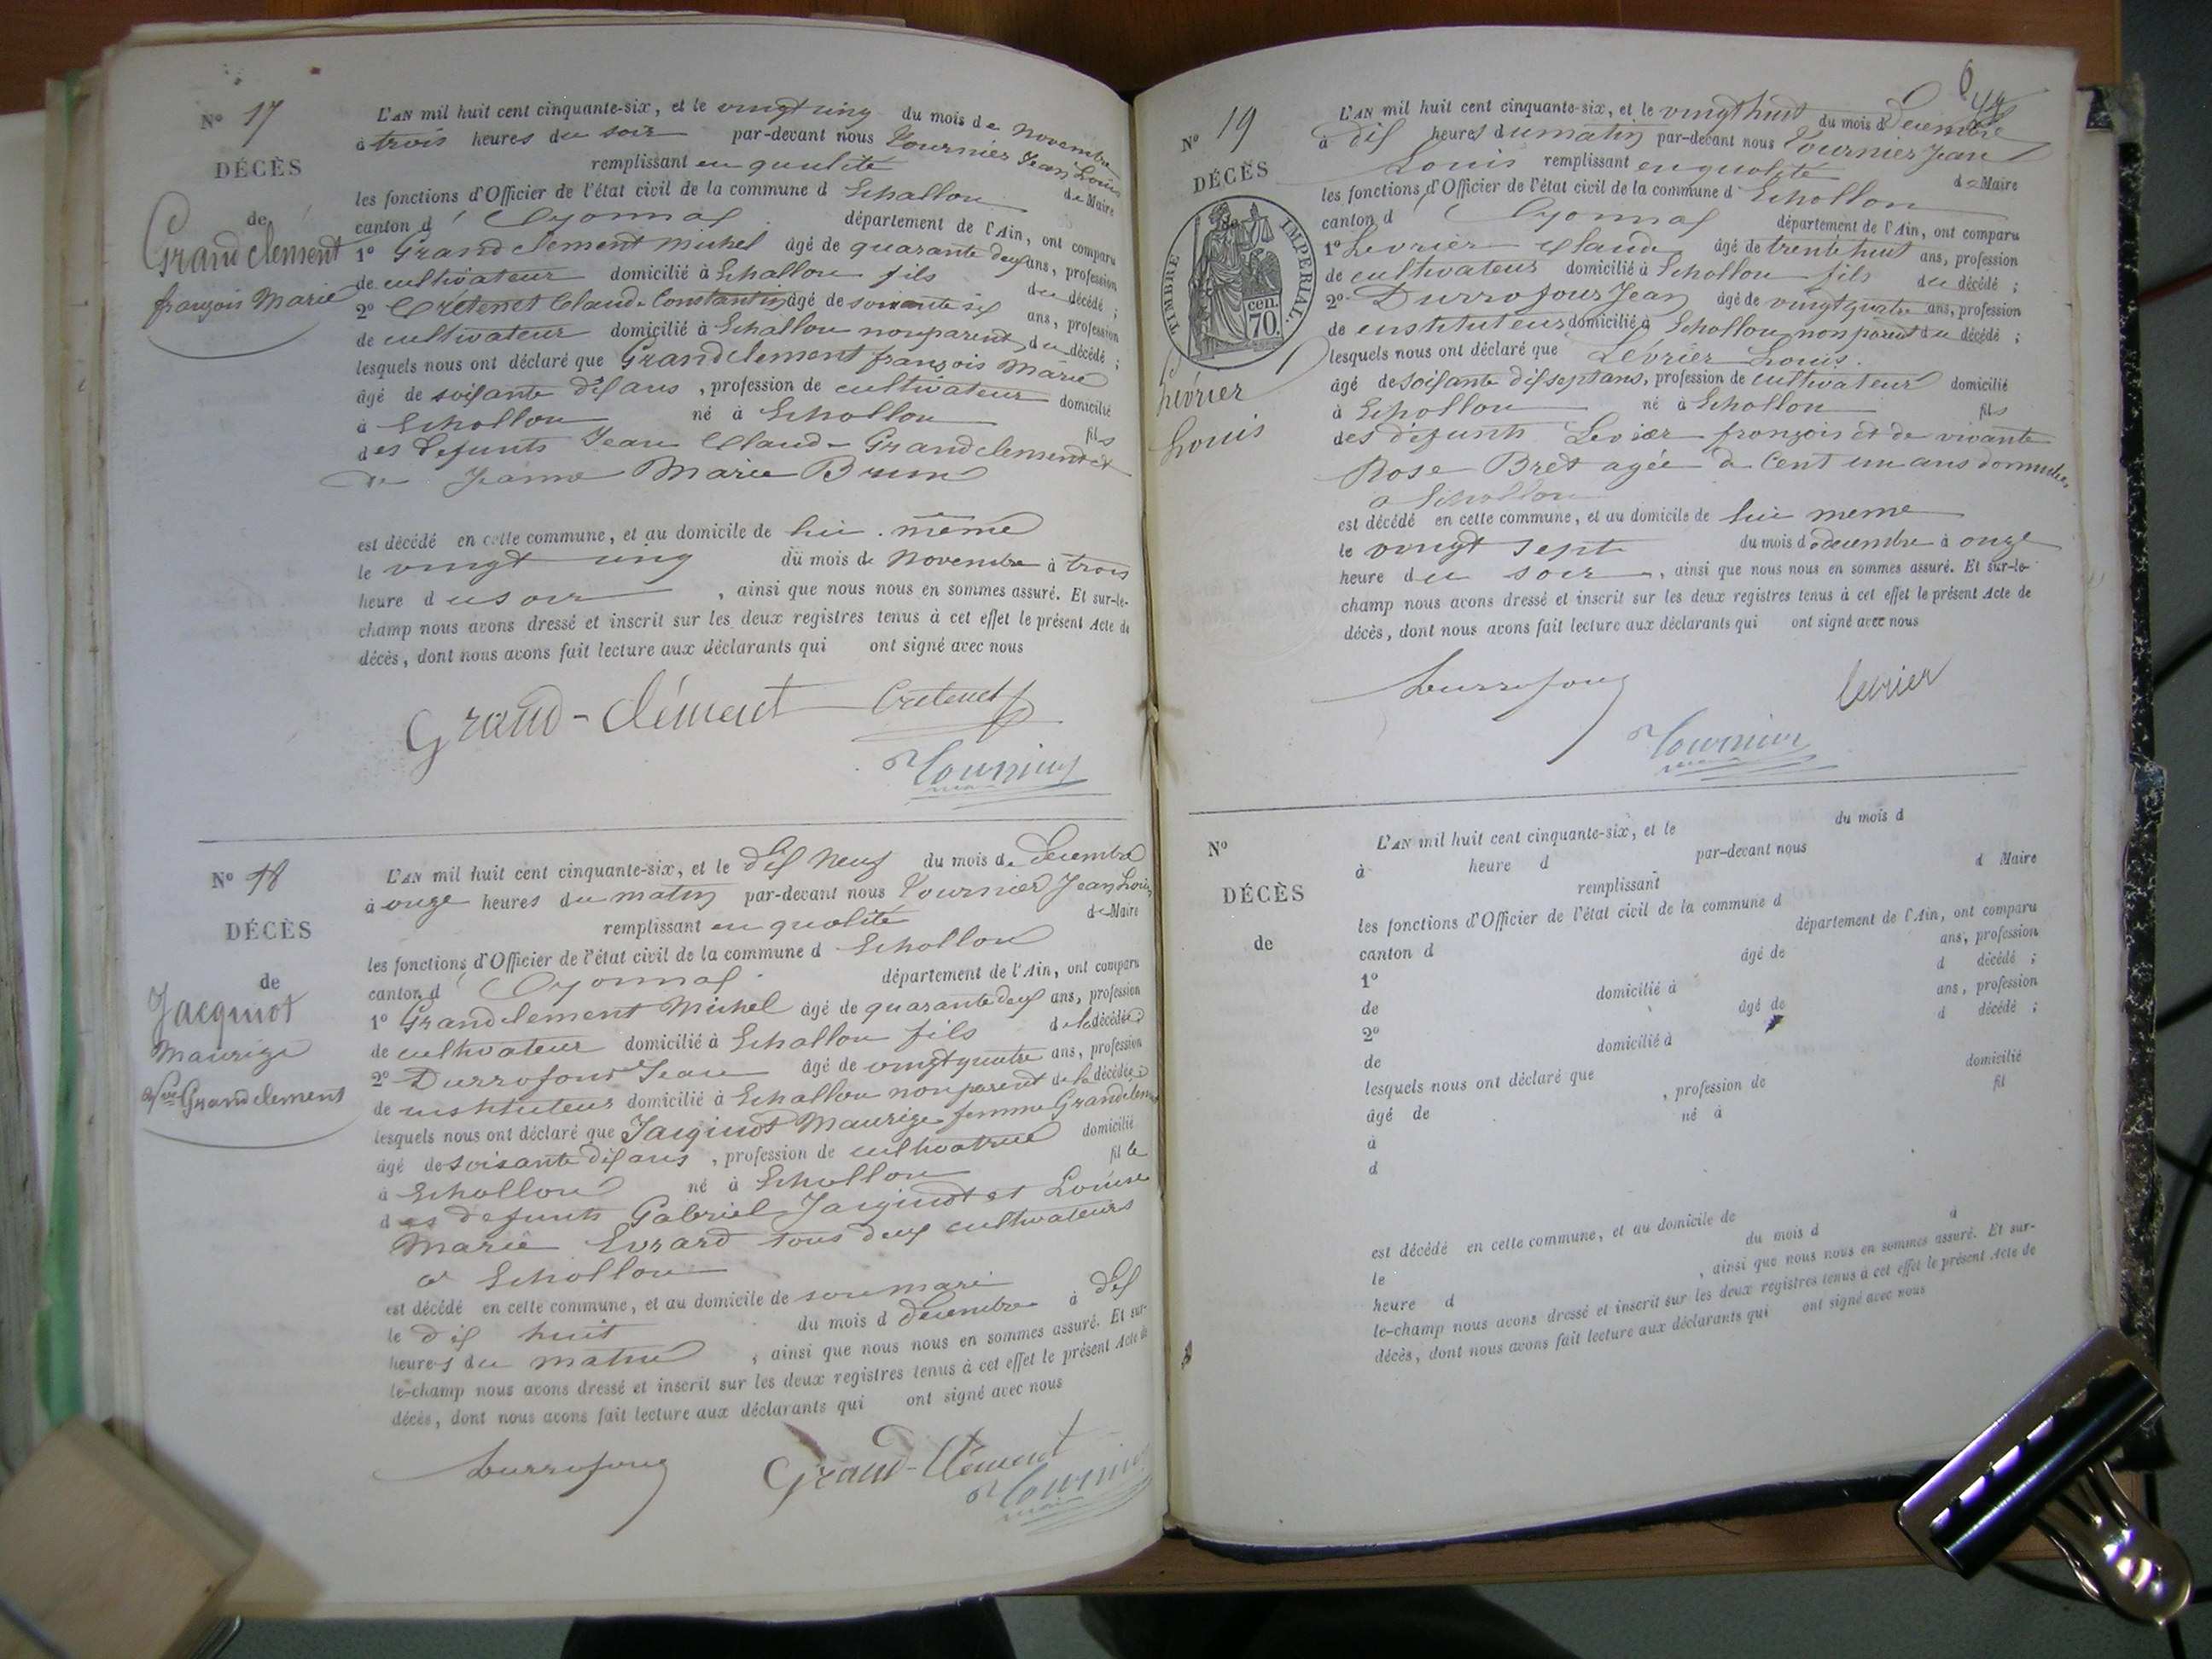 No 17
DÉCÈS
de
Grandclement
françois Marie
L'AN mil huit cent cinquante-six, et le vingt cinq du mois de Novembre
à trois heures du soir par-devant nous Tournier Jean Louis
remplissant en qualité de Maire
les fonctions d'Officier de l'état civil de la commune d Echallon
canton d Oyonnax département de l'Ain, ont comparu
1o Grandclement Michel âgé de quarante deux ans, profession
de cultivateur domicilié à Echallon fils du décédé ;
2o Cretenet Claude Constantin âgé de soixante six ans, profession
de cultivateur domicilié à Echallon non parent du décédé ;
lesquels nous ont déclaré que Grandclement françois Marie
âgé de soixante dix ans , profession de cultivateur domicilié
à Echollon né à Echollon fils
des defunts Jean Claude Grandclement et
de Jeanne Marie Brun
est décédé en cette commune, et au domicile de lui même
le vingt cinq du mois de Novembre à trois
heure du soir , ainsi que nous nous en sommes assuré. Et sur-le-
champ nous avons dressé et inscrit sur les deux registres tenus à cet effet le présent Acte de
décès, dont nous avons fait lecture aux déclarants qui ont signé avec nous
Grand-Clément Cretenet
Tournier
maire
No 18
DÉCÈS
de
Jacquiot
Maurize
fme Grandclement
L'AN mil huit cent cinquante-six, et le dix neuf du mois de Decembre
à onze heures du matin par-devant nous Tournier Jean Louis
remplissant en qualité de Maire
les fonctions d'Officier de l'état civil de la commune d Echollon
canton d Oyonnax département de l'Ain, ont comparu
1o Grandclement Michel âgé de quarante deux ans, profession
de cultivateur domicilié à Echallon fils de la décédée
2o Durrafour Jean âgé de vingt quatre ans, profession
de instituteur domicilié à Echallon non parent de la décédée
lesquels nous ont déclaré que Jacquiot Maurize femme Grandclement
âgé de soixante dix ans , profession de cultivatrice domicilié
à Echollon né à Echollon fille
des defunts Gabriel Jacquiot et Louise
Marie Evrard tous deux cultivateurs
a Echollon
est décédé en cette commune, et au domicile de son mari
le dix huit du mois d Decembre à dix
heures du matin , ainsi que nous nous en sommes assuré. Et sur-
le-champ nous avons dressé et inscrit sur les deux registres tenus à cet effet le présent Acte de
décès, dont nous avons fait lecture aux déclarants qui ont signé avec nous
Durrafour Grand-Clément
Tournier
maire
No 19
DÉCÈS
TIMBRE IMPERIAL
70 cen.
Levrier
Louis
L'AN mil huit cent cinquante-six, et le vingt huit du mois d Decembre
à dix heures du matin par-devant nous Tournier Jean
Louis remplissant en qualité de Maire
les fonctions d'Officier de l'état civil de la commune d Echollon
canton d Oyonnax département de l'Ain, ont comparu
1o Levrier Claude âgé de trente huit ans, profession
de cultivateur domicilié à Echollon fils du décédé ;
2o Durrafour Jean âgé de vingt quatre ans, profession
de instituteur domicilié à Echollon non parent du décédé ;
lesquels nous ont déclaré que Levrier Louis
âgé de soixante dix sept ans, profession de cultivateur domicilié
à Echollon né à Echollon fils
des défunts Levrier françois et de vivante
Rose Bret agée de Cent un ans
a Echollon
est décédé en cette commune, et au domicile de lui meme
le vingt sept du mois d decembre à onze
heure du soir , ainsi que nous nous en sommes assuré. Et sur-le-
champ nous avons dressé et inscrit sur les deux registres tenus à cet effet le présent Acte de
décès, dont nous avons fait lecture aux déclarants qui ont signé avec nous
Durrafour levrier
Tournier
maire
No
DÉCÈS
de
L'AN mil huit cent cinquante-six, et le du mois d
à heure d par-devant nous
remplissant d Maire
les fonctions d'Officier de l'état civil de la commune d
canton d département de l'Ain, ont comparu
1o âgé de ans, profession
de domicilié à d décédé ;
2o âgé de ans, profession
de domicilié à d décédé ;
lesquels nous ont déclaré que
âgé de , profession de domicilié
à né à fil
d
est décédé en cette commune, et au domicile de
le du mois d à
heure d , ainsi que nous nous en sommes assuré. Et sur-
le-champ nous avons dressé et inscrit sur les deux registres tenus à cet effet le présent Acte de
décès, dont nous avons fait lecture aux déclarants qui ont signé avec nous